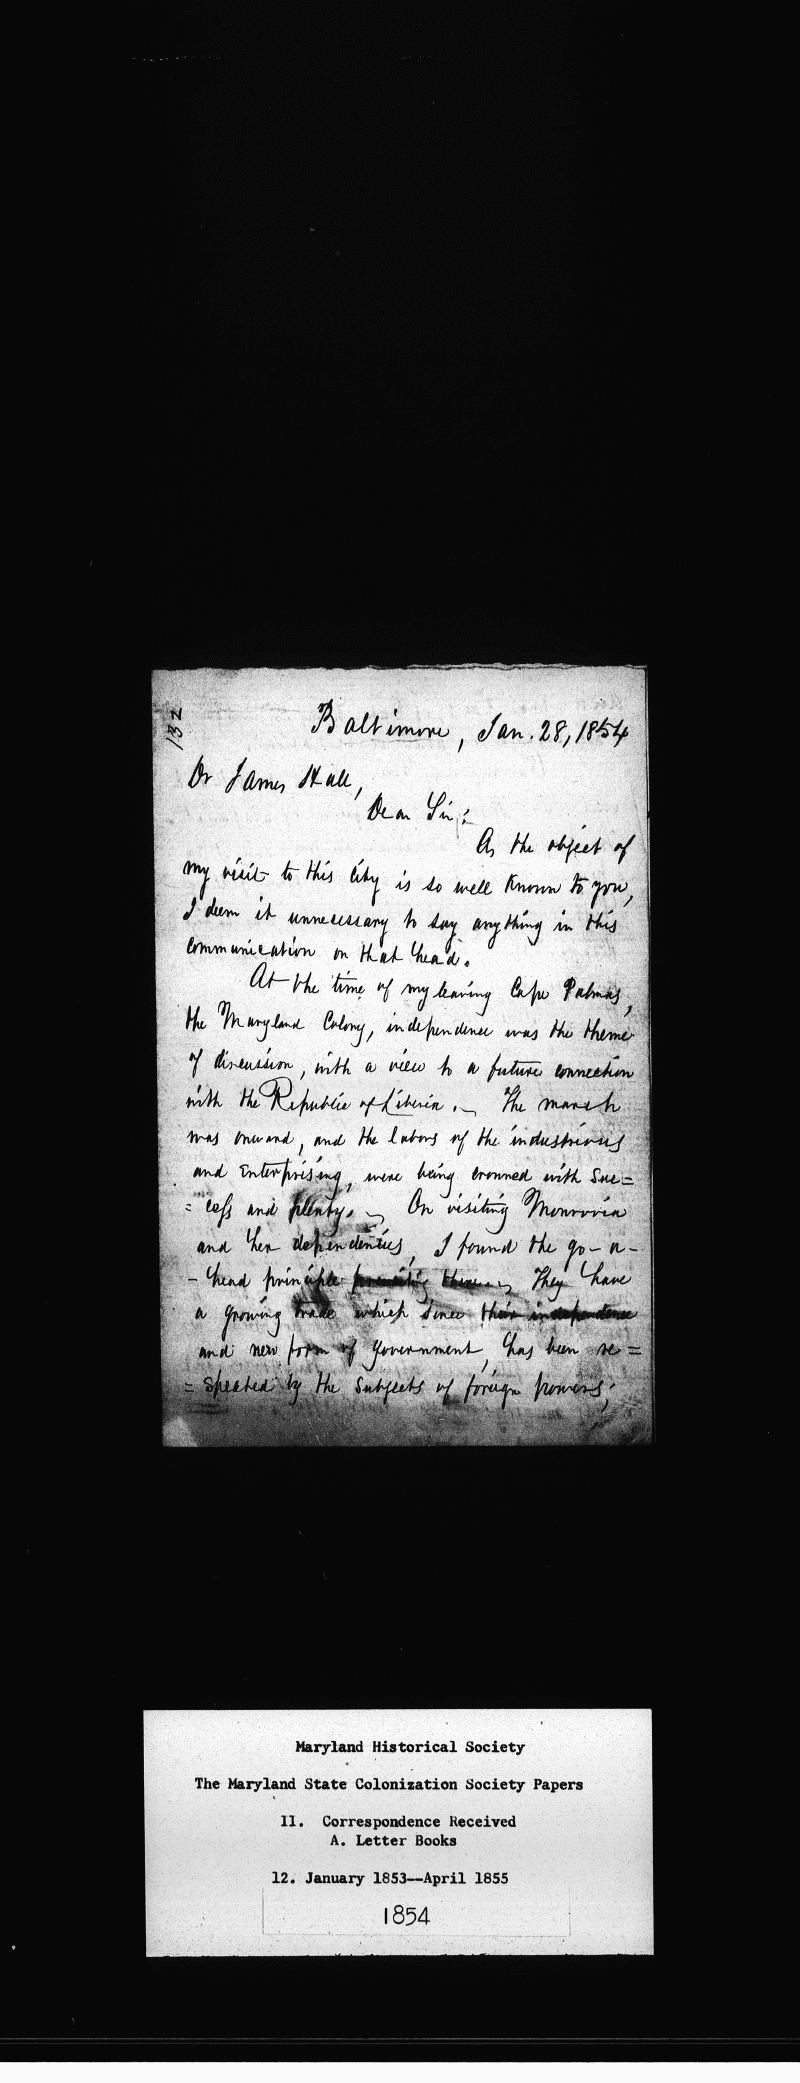 132
Baltimore, Jan. 28, 1854
Dr James Hall,
Dear Sir:
As the object of
my visit to this City is so well known to you,
I deem it unnecessary to say anything in this
communication on that head.
At the time of my leaving Cape Palmas,
the Maryland Colony, independence was the theme
of discussion, with a view to a future connection
with the Republic of Liberia. The march
was onward, and the labors of the industrious
and Enterprising, were being crowned with Suc=
=cess and plenty. On visiting Monrovia
and her dependencies, I found the go-a-
-head principle there. They have
a growing trade which since their independence
and new form of Government, has been re=
=spected by the Subjects of foreign powers;
Maryland Historical Society
The Maryland State Colonization Society Papers
11. Correspondence Received
A. Letter Books
12. January 1853--April 1855
1854